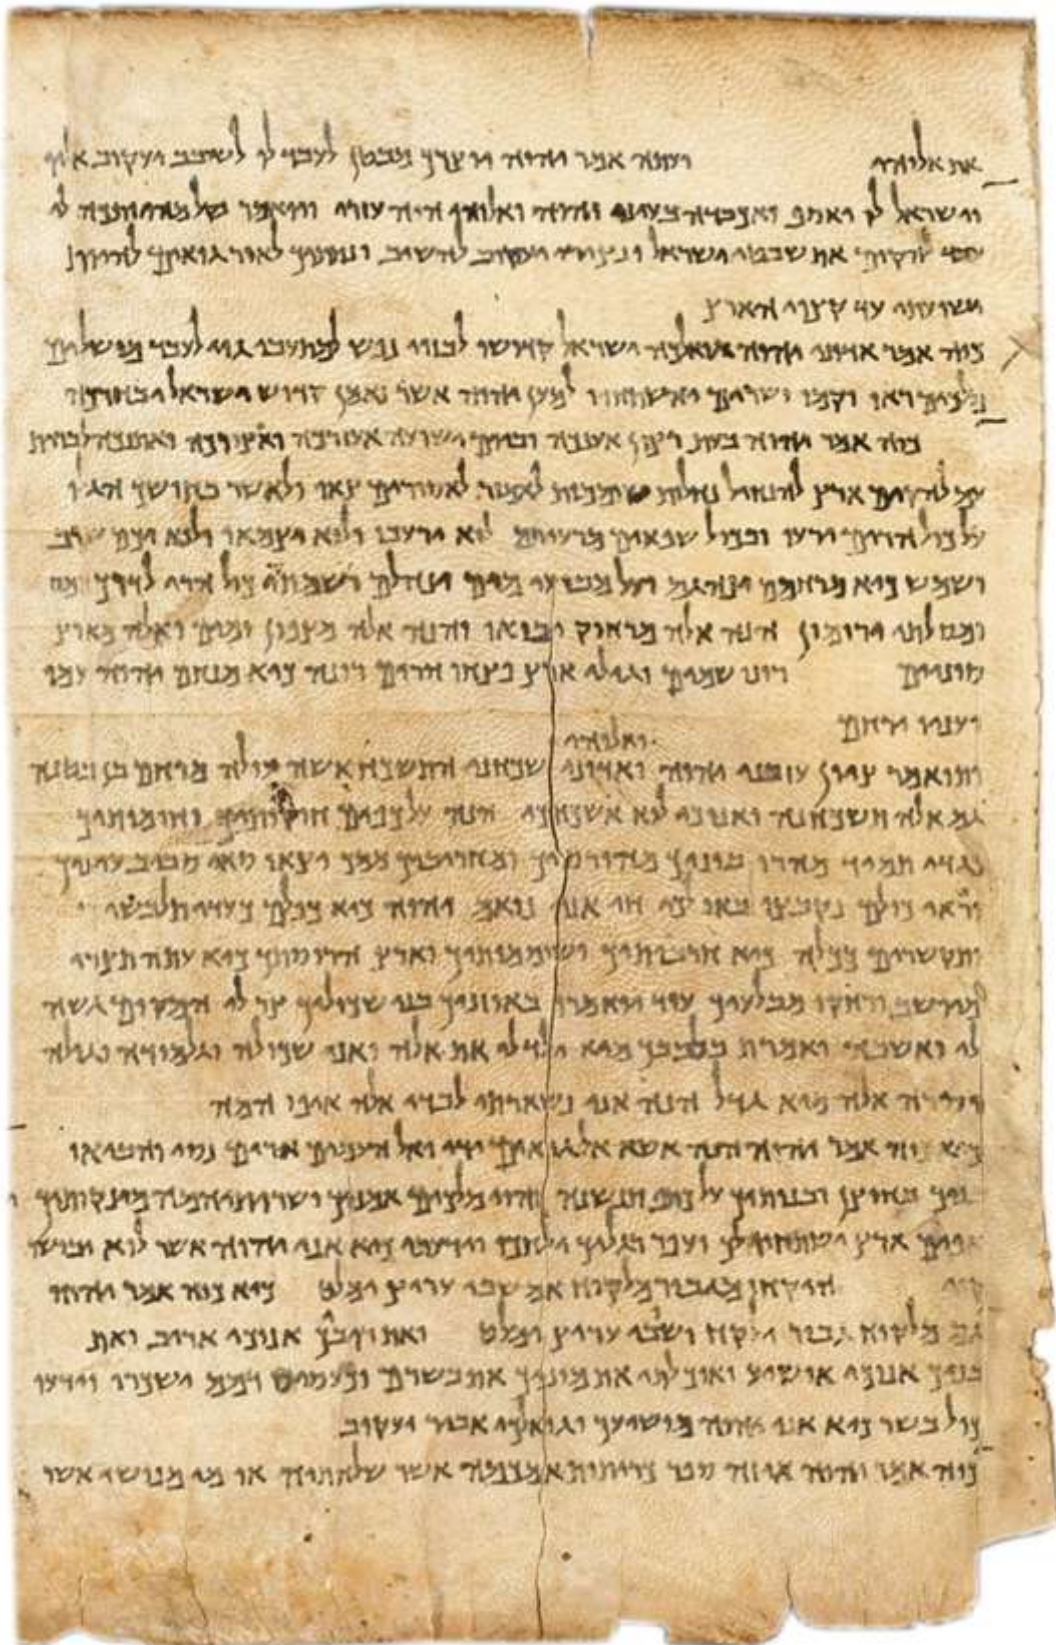 את אלוהי ועתה אמר יהוה יוצרך מבטן לעבד לו לשובב יעקוב אליו
וישראל לו יאסף ואכבדה בעיני יהוה ואלוהי היה עזרי ויואמר מהיותכה לי
עבד להקים את שבטי ישראל ונצירי יעקוב להשיב ונתתיך לאור גואים להיות
ישועתי עד קצוי הארץ
כוה אמר אדוני יהוה גואלכה ישראל קדושו לבזוי נפש למתעבי גוי לעבד מושלים
מלכים ראו וקמו ושרים והשתחוו למען יהוה אשר נאמן קדוש ישראל ויבחרכה
כוה אמר יהוה בעת רצון אענכה וביום ישועה אעזרכה ואצורכה ואתנכה לברית
עם להקים ארץ להנחיל נחלות שוממות לאמור לאסורים צאו ולאשר בחושך הגלו
על כול הרים ירעו ובכול שפאים מרעיתם לוא ירעבו ולוא יצמאו ולוא יכם שרב
ושמש כיא מרחמם ינהגם ועל מבועי מים ינהלם ושמתי כול הרי לדרך
ומסלתי ירומון הנה אלה מרחוק יבואו והנה אלה מצפון ומים ואלה מארץ
סונים רונו שמים וגילי ארץ פצחו הרים רונה כיא מנחם יהוה עמו
ועניו ירחם
ואלוהי
ותואמר ציון עזבני יהוה ואדוני שכחני התשכח אשה עולה מרחם בן בטנה
גם אלה תשכחנה ואנוכי לוא אשכחכי הנה על כפים חקותיך וחומותיך
נגדי תמיד מהרו בוניך מהורסיך ומחריביך ממך יצאו שאי סביב עיניך
וראי כולם נקבצו באו לך חי אני נואם יהוה כיא כלם כעדי תלבשי
ותקשרים ככלה כיא חרבותיך ושוממותיך וארץ הריסותיך כיא עתה תצרי
מיושב ורחקו מבלעיך עוד יואמרו באוזניך בני שכוליך צר לי המקום גשה
לי ואשבה ואמרת בלבבך מיא ילד לי את אלה ואני שכולה וגלמודה גולה
וסרה אלה מיא גדל הנה אני נשארתי לבדי אלה איפו המה
כיא כוה אמר יהוה הנה אשא אל גואים ידי ואל העמים ארים נסי והביאו
בניך בחוצן ובנותיך על כתף תנשינה והיו מלכים אמניך ושרותיהמה מיניקותיך
אפים ארץ ישתחוו לך ועפר רגליך ילחכו וידעתי כיא אני יהוה אשר לוא יבושו
קוי היקחו מגבור מלקוח אם שבי עריץ ימלט כיא כוה אמר יהוה
גם מלקוח גבור ילקח ושבי עריץ ימלט ואת ריבך אנוכי אריב ואת
בניך אנוכי אושיע ואוכלתי את מוניך את בשרם וכעסיס דמם ישכרו וידעו
כול בשר כיא אני יהוה מושיעך וגואלך אביר יעקוב
כוה אמר יהוה אי זה ספר כריתות אמכמה אשר שלחתיה או מי מנושי אשר